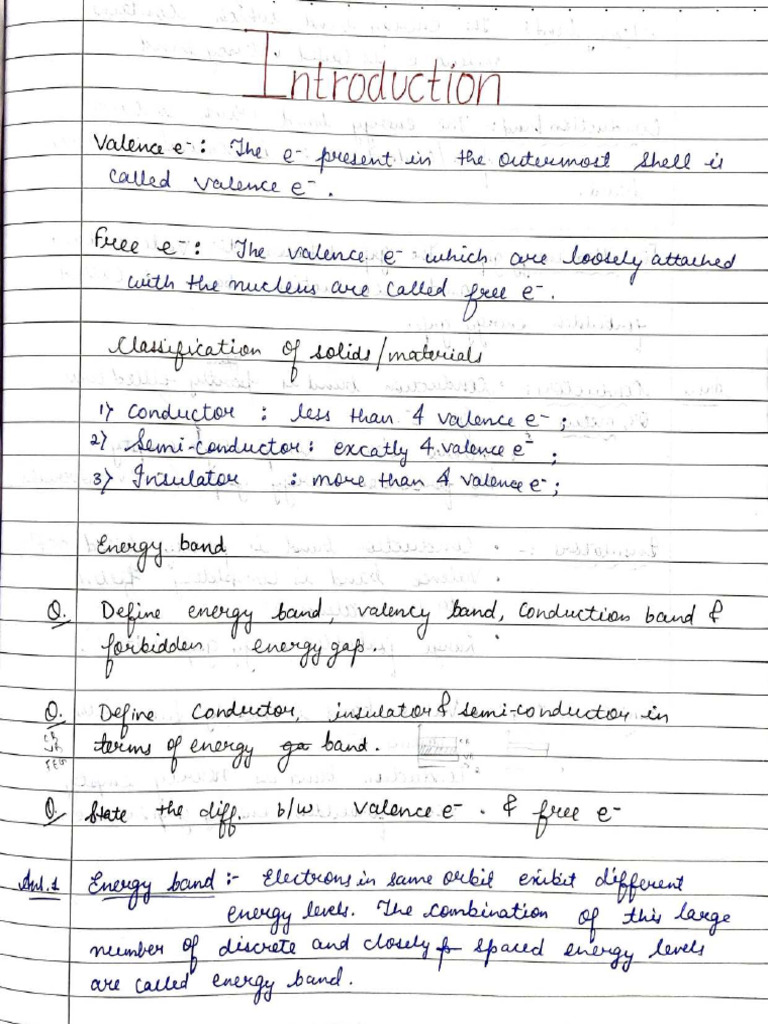 Introduction
Valence e⁻: The e⁻ present in the outermost shell is
called valence e⁻.
Free e⁻: The valence e⁻ which are loosely attached
with the nucleus are called free e⁻.
Classification of solids/materials
1) Conductor : less than 4 valence e⁻;
2) Semi-conductor: excatly 4 valence e⁻;
3) Insulator : more than 4 valence e⁻;
Energy band
Q. Define energy band, valency band, conduction band &
forbidden energy gap.
Q. Define conductor, insulator & semi-conductor in
terms of energy band.
Q. State the diff. b/w valence e⁻. & free e⁻
Ans.1 Energy band :- Electrons in same orbit exibit different
energy levels. The combination of this large
number of discrete and closely spaced energy levels
are called energy band.